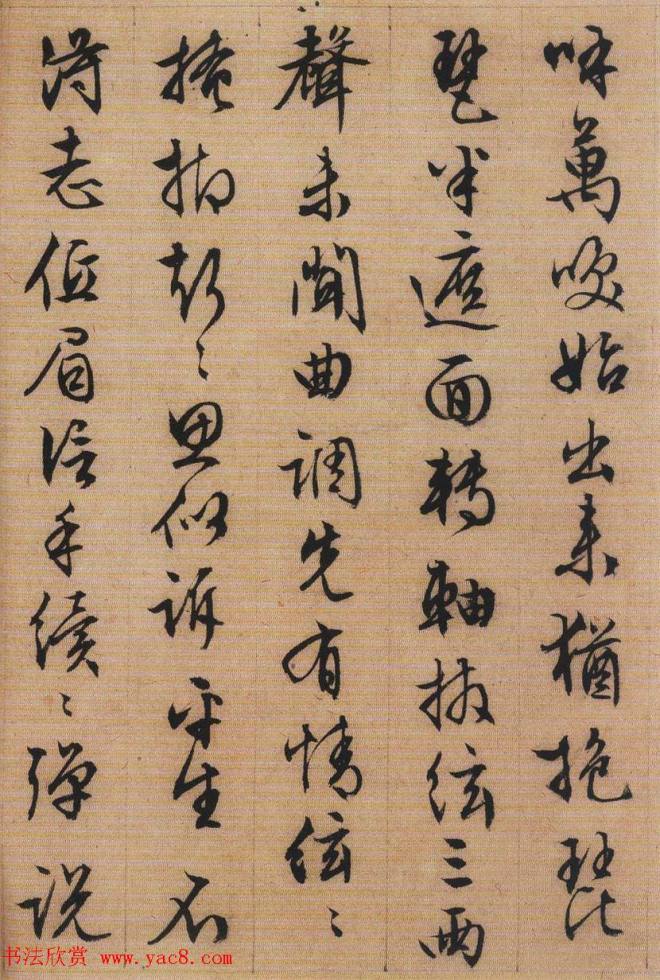 呼萬喚始出來猶抱琵
琶半遮面轉軸撥絃三兩
聲未聞曲調先有情絃〻
掩抑聲〻思似訴平生不
得志低眉信手續〻彈説
书法欣赏 www.yac8.com